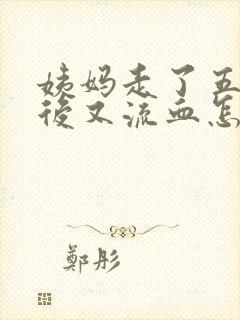 姨妈走了五
後又流血怎
鄭彤